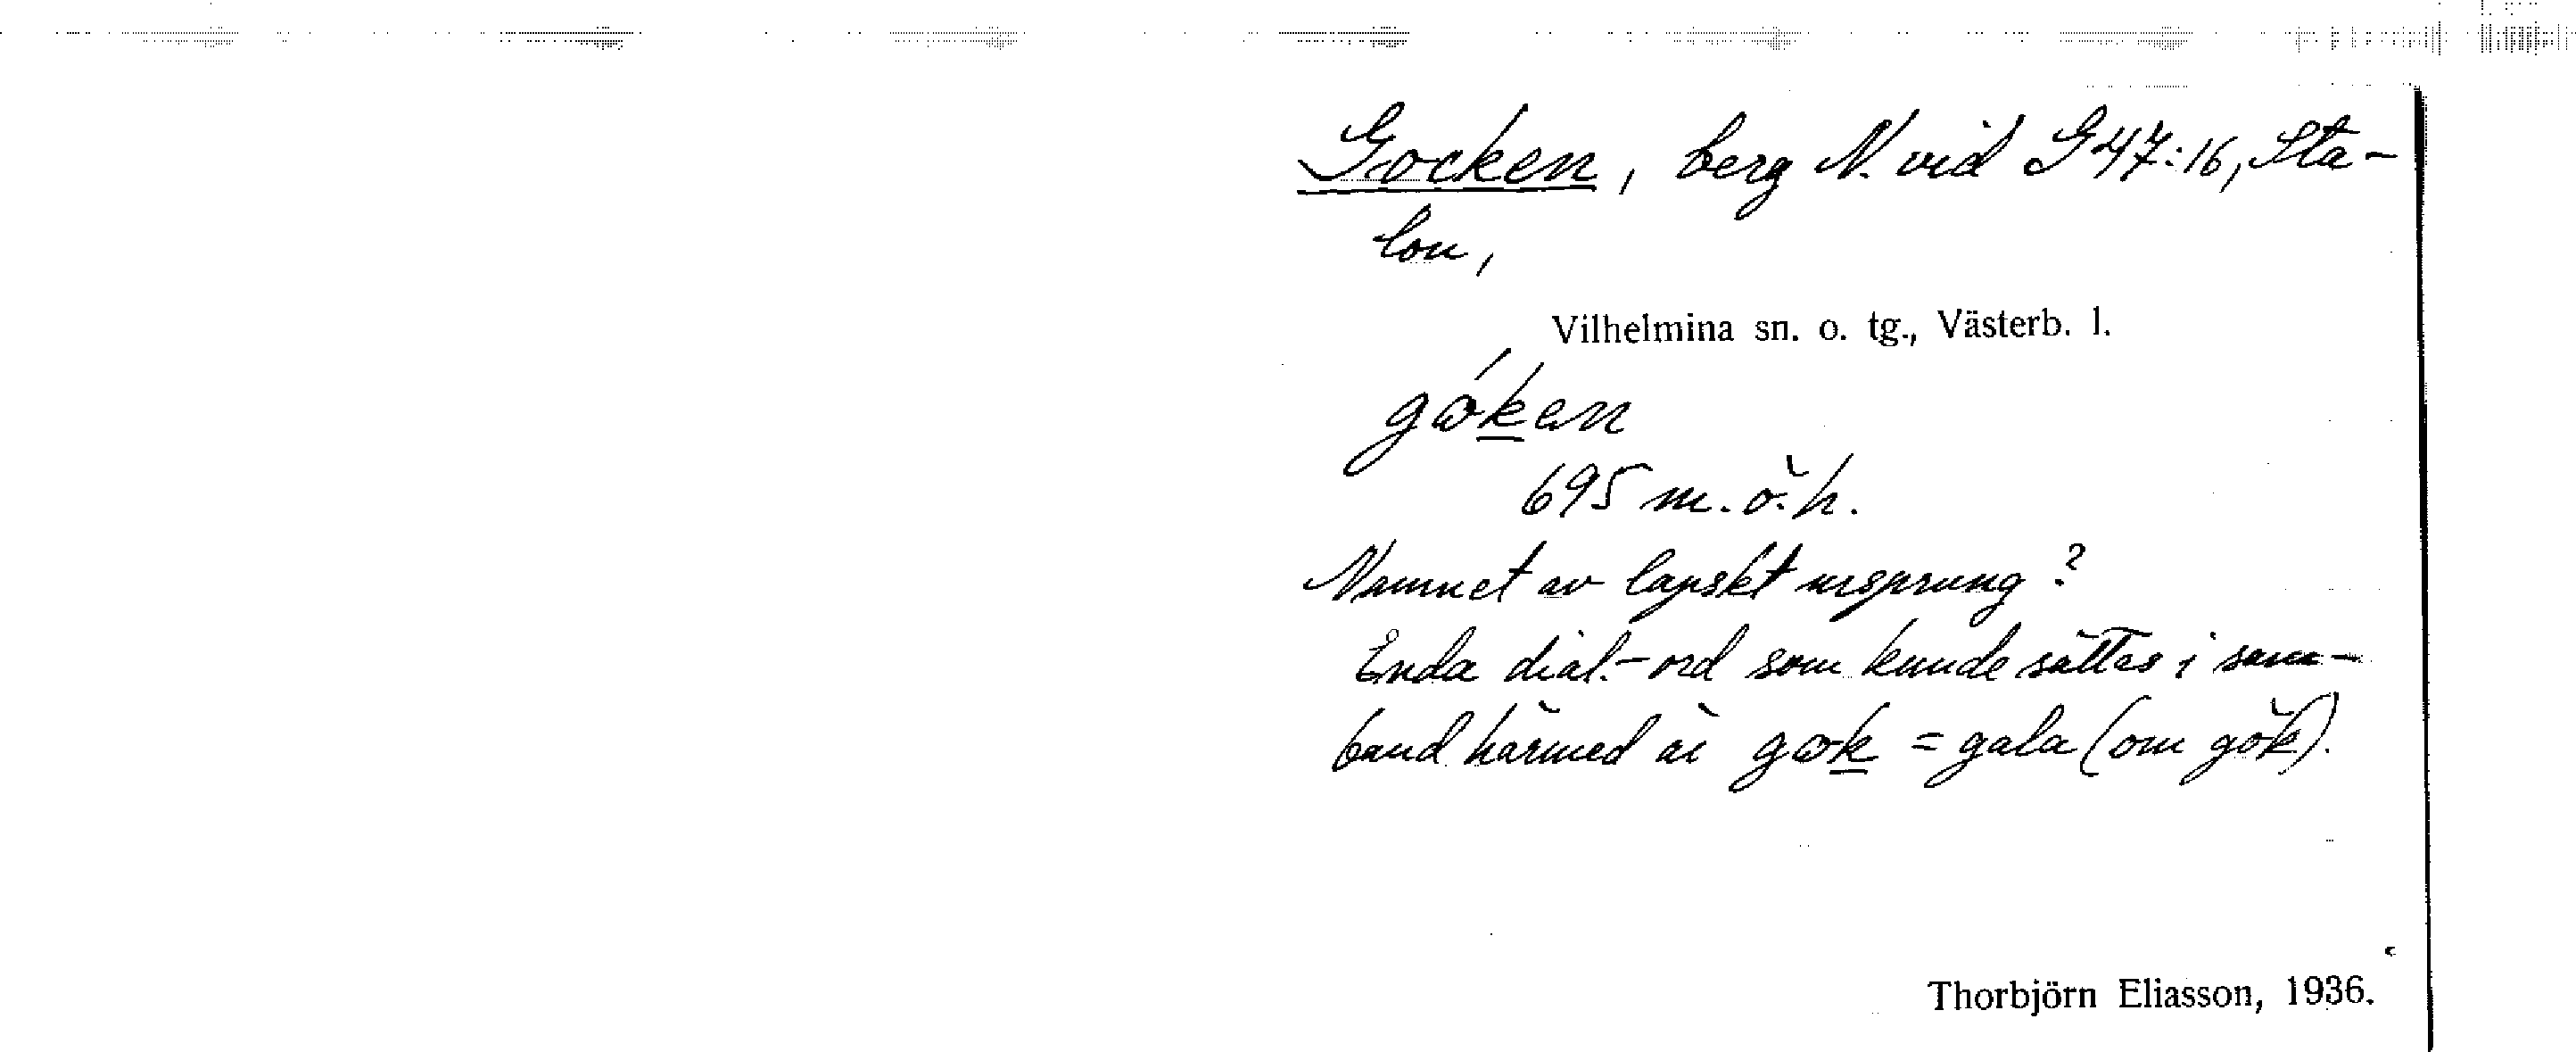 Gocken, berg N. vid G 47:16, Sta-
lon,
Vilhelmina sn. o. tg., Västerb. l.
gǿken
695 m.ö.h.
Namnet av lapskt ursprung?
Enda dial.-ord som kunde sättas i sam-
band härmed är gøk = gala (om gök).
Thorbjörn Eliasson, 1936.